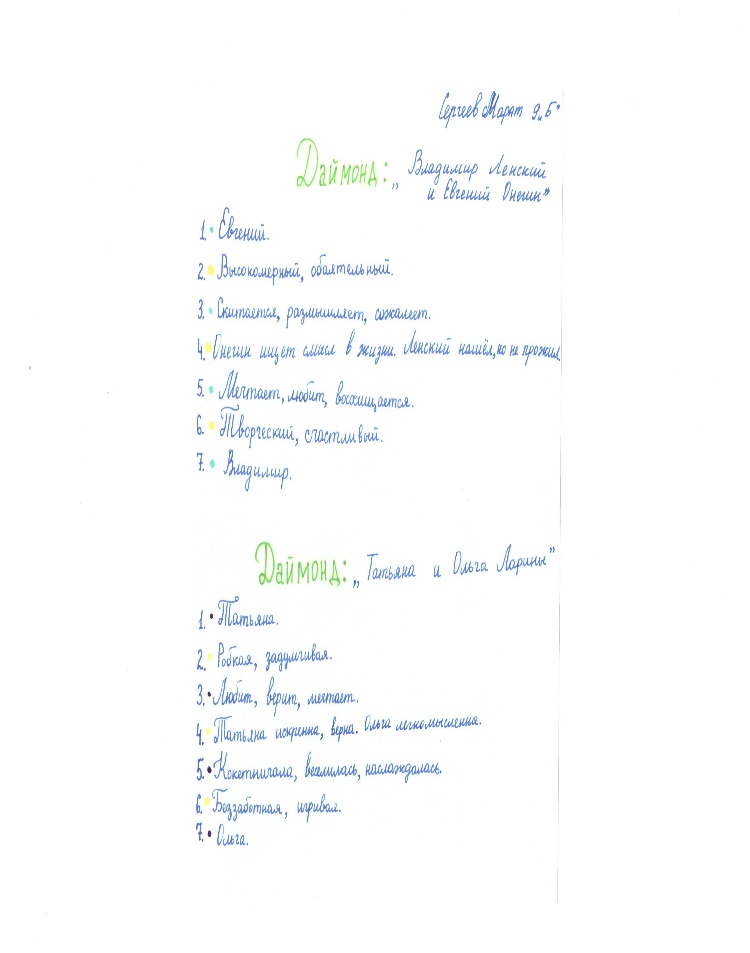 Сергеев Марат 9„Б"
Даймонд: „Владимир Ленский
и Евгений Онегин"
1. • Евгений.
2. • Высокомерный, обаятельный.
3. • Скитается, размышляет, сожалеет.
4. • Онегин ищет смысл в жизни. Ленский нашёл, но не прожил.
5. • Мечтает, любит, восхищается.
6. • Творческий, счастливый.
7. • Владимир.
Даймонд: „Татьяна и Ольга Ларины"
1. • Татьяна.
2. • Робкая, задумчивая.
3. • Любит, верит, мечтает.
4. • Татьяна искренна, верна. Ольга легкомысленна.
5. • Кокетничала, веселилась, наслаждалась.
6. • Беззаботная, игривая.
7. • Ольга.